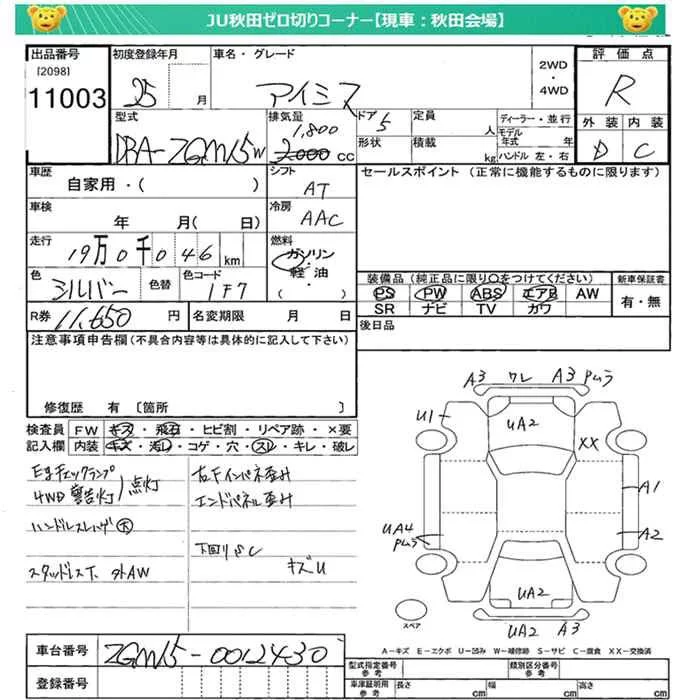 JU秋田ゼロ切りコーナー【現車：秋田会場】
出品番号 初度登録年月 車名・グレード 2WD・4WD 評価点
[2098]
11003 25 月 アイシス R
型式 排気量 ドア 定員 ディーラー・並行 外装 内装
DBA-ZGM15W 1,800 2,000 CC 5 人 モデル年式 年 D C
形状 積載 kg ハンドル 左・右
車歴 シフト セールスポイント (正常に機能するものに限ります)
自家用・( ) AT
車検 冷房
年 月( 日) AAC
走行 燃料
19万0千046 km ガソリン・軽・油・( )
色 色替 色コード 装備品(純正品に限り○をつけてください) 新車保証書
シルバー 1F7 PS PW ABS エアB AW 有・無
SR ナビ TV カワ
R券 11,650 円 名変期限 月 日 後日品
注意事項申告欄(不具合内容等は具体的に記入して下さい)
修復歴 有 〔箇所 〕
検査員記入欄 FW キズ・飛石・ヒビ割・リペア跡・×要
内装 キズ・汚レ・コゲ・穴・スレ・キレ・破レ
4WD 警告灯 点灯
右Fインパネ歪み
エンドパネル歪み
下回りSC
キズU
スタッドレスT. 外AW
A3 ワレ A3 Pムラ
U1 UA2 XX
A1
UA4 Pムラ A2
UA2
UA2 A3
スペア
A－キズ E－エクボ U－凹み W－補修跡 S－サビ C－腐食 XX－交換済
車台番号 ZGM15-0012430
登録番号
型式指定番号 参考 類別区分番号 参考
車庫証明用 参考 長さ cm 幅 cm 高さ cm